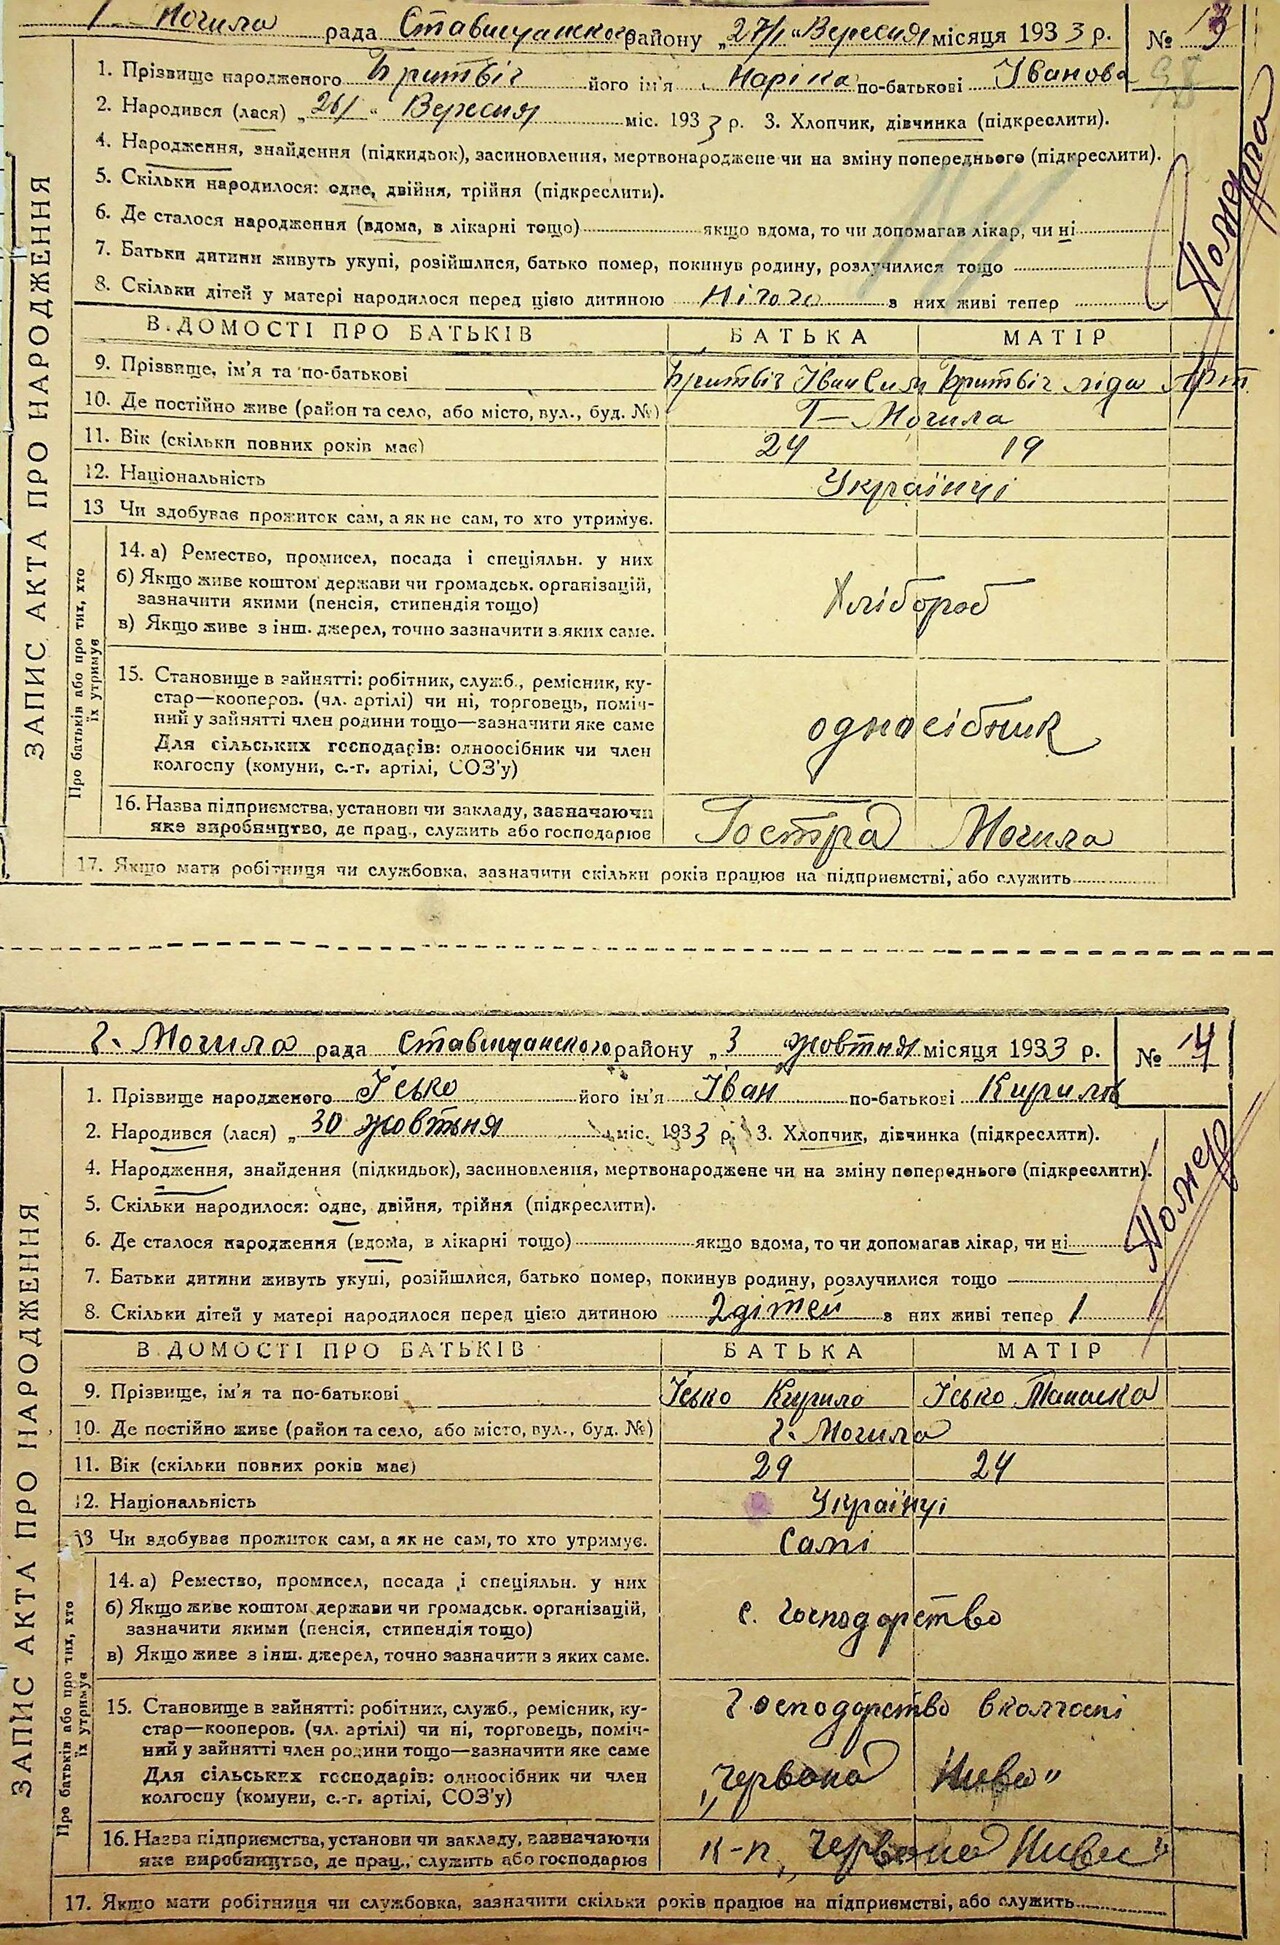 Г Могила рада Ставищанского району „27/ " Вересня місяця 1933 р. № 13
98
1. Прізвище народженого його ім'я Маріка по-батькові Іванова
2. Народився (лася) „26/ " Вересня міс. 1933 р. 3. Хлопчик, дівчинка (підкреслити).
4. Народження, знайдення (підкидьок), засиновлення, мертвонароджене чи на зміну попереднього (підкреслити).
5. Скільки народилося: одне, двійня, трійня (підкреслити).
6. Де сталося народження (вдома, в лікарні тощо) якщо вдома, то чи допомагав лікар, чи ні
7. Батьки дитини живуть укупі, розійшлися, батько помер, покинув родину, розлучилися тощо
8. Скільки дітей у матері народилося перед цією дитиною Нічого в них живі тепер
Померла
ЗАПИС АКТА ПРО НАРОДЖЕННЯ
В ДОМОСТІ ПРО БАТЬКІВ БАТЬКА МАТІР
9. Прізвище, ім'я та по-батькові Іван Сим Ліда Арт
10. Де постійно живе (район та село, або місто, вул., буд. №) Г—Могила
11. Вік (скільки повних років має) 24 19
12. Національність Українці
13 Чи здобуває прожиток сам, а як не сам, то хто утримує.
Про батьків або про тих, хто їх утримує
14. а) Ремество, промисел, посада і спеціяльн. у них
б) Якщо живе коштом держави чи громадськ. організацій,
зазначити якими (пенсія, стипендія тощо) Хлібороб
в) Якщо живе з інш. джерел, точно зазначити з яких саме.
15. Становище в зайнятті: робітник, служб., ремісник, ку-
стар—кооперов. (чл. артілі) чи ні, торговець, поміч-
ний у зайнятті член родини тощо—зазначити яке саме
Для сільських господарів: одноосібник чи член односібник
колгоспу (комуни, с.-г. артілі, СОЗ'у)
16. Назва підприємства, установи чи закладу, зазначаючи
яке виробництво, де прац., служить або господарює Гостра Могила
17. Якщо мати робітниця чи службовка, зазначити скільки років працює на підприємстві, або служить
г. Могила рада Ставищанского району „3 жовтня місяця 1933 р. № 14
1. Прізвище народженого Ісько його ім'я Іван по-батькові Кирилів
2. Народився (лася) „30 жовтня міс. 1933 р. 3. Хлопчик, дівчинка (підкреслити).
4. Народження, знайдення (підкидьок), засиновлення, мертвонароджене чи на зміну попереднього (підкреслити).
5. Скільки народилося: одне, двійня, трійня (підкреслити).
6. Де сталося народження (вдома, в лікарні тощо) якщо вдома, то чи допомагав лікар, чи ні
7. Батьки дитини живуть укупі, розійшлися, батько помер, покинув родину, розлучилися тощо
8. Скільки дітей у матері народилося перед цією дитиною 2 дітей в них живі тепер 1
Помер
ЗАПИС АКТА ПРО НАРОДЖЕННЯ
В ДОМОСТІ ПРО БАТЬКІВ БАТЬКА МАТІР
9. Прізвище, ім'я та по-батькові Ісько Кирило Ісько Танаска
10. Де постійно живе (район та село, або місто, вул., буд. №) г. Могила
11. Вік (скільки повних років має) 29 24
12. Національність Українці
13 Чи вдобуває прожиток сам, а як не сам, то хто утримує. Самі
Про батьків або про тих, хто їх утримує
14. а) Ремество, промисел, посада і спеціяльн. у них
б) Якщо живе коштом держави чи громадськ. організацій,
зазначити якими (пенсія, стипендія тощо) с. господарство
в) Якщо живе з інш. джерел, точно зазначити з яких саме.
15. Становище в зайнятті: робітник, служб., ремісник, ку-
стар—кооперов. (чл. артілі) чи ні, торговець, поміч- господарство в колгоспі
ний у зайнятті член родини тощо—зазначити яке саме
Для сільських господарів: одноосібник чи член „Червона Нива"
колгоспу (комуни, с.-г. артілі, СОЗ'у)
16. Назва підприємства, установи чи закладу, вазначаючи
яке виробництво, де прац., служить або господарює к-п „Червона Нива"
17. Якщо мати робітниця чи службовка, зазначити скільки років працює на підприємстві, або служить